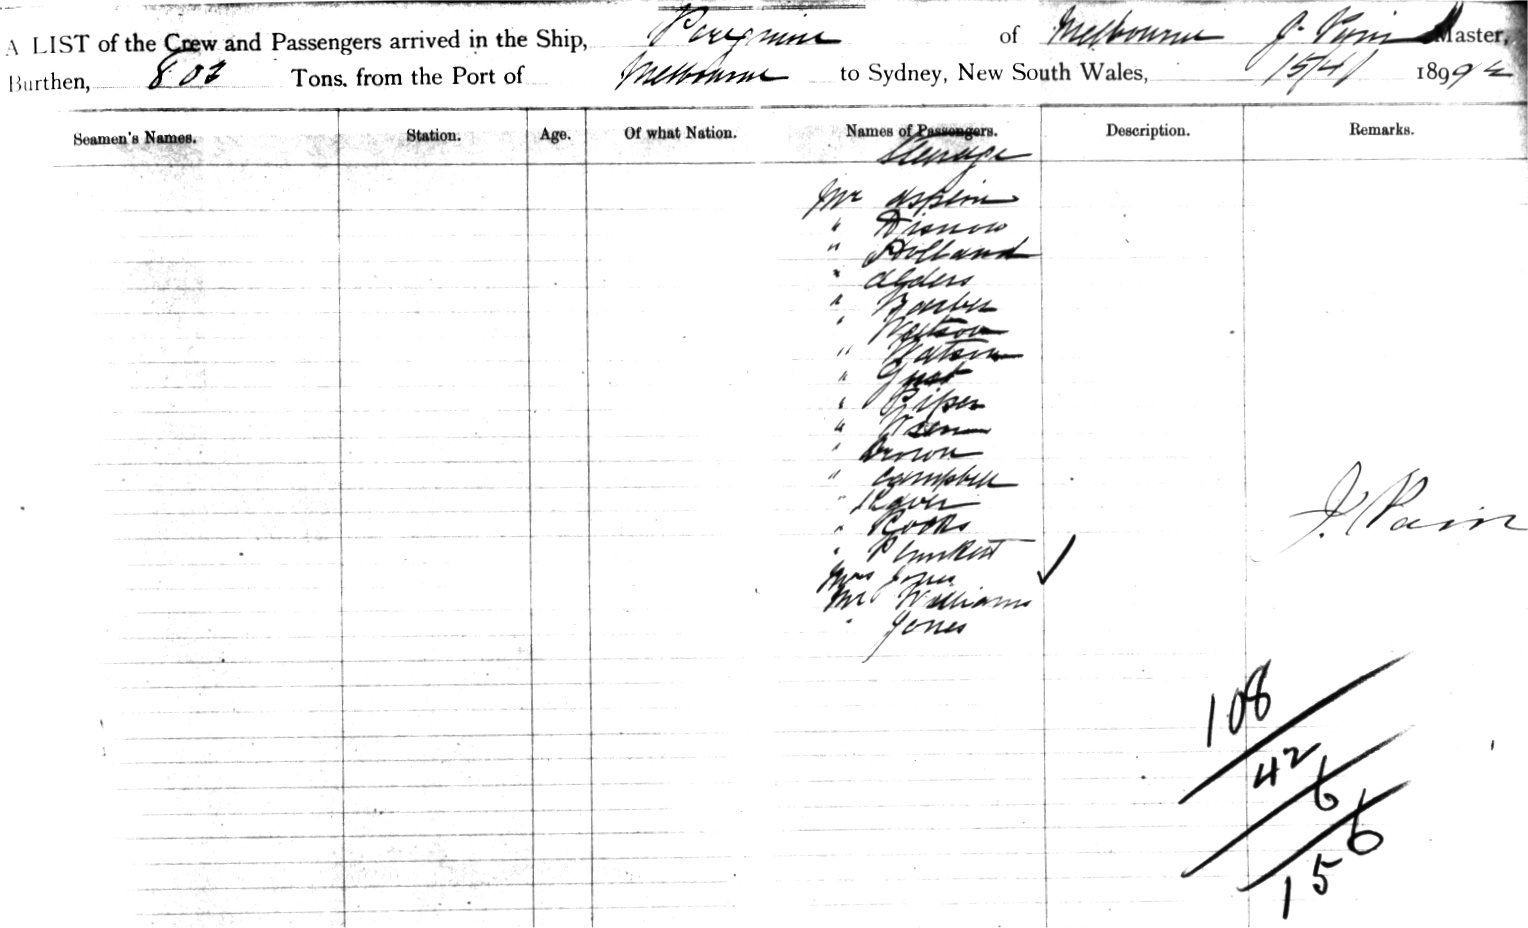 A LIST of the Crew and Passengers arrived in the Ship, Peregrine of Melbourne J. Pain Master,
Burthen, 803 Tons, from the Port of Melbourne to Sydney, New South Wales, 15/4/ 1894
Seamen's Names. Station. Age. Of what Nation. Names of Passengers. Description. Remarks.
Steerage
Mr Aspein
" Disnow
" Holland
" Alders
" Barber
" Watson
" Watson
"
" Piper
"
" Brown
" Campbell
"
" Rooks
" Plunkett
Mrs Jones
Mr Williams
" Jones
J. Pain
108
42
6
156